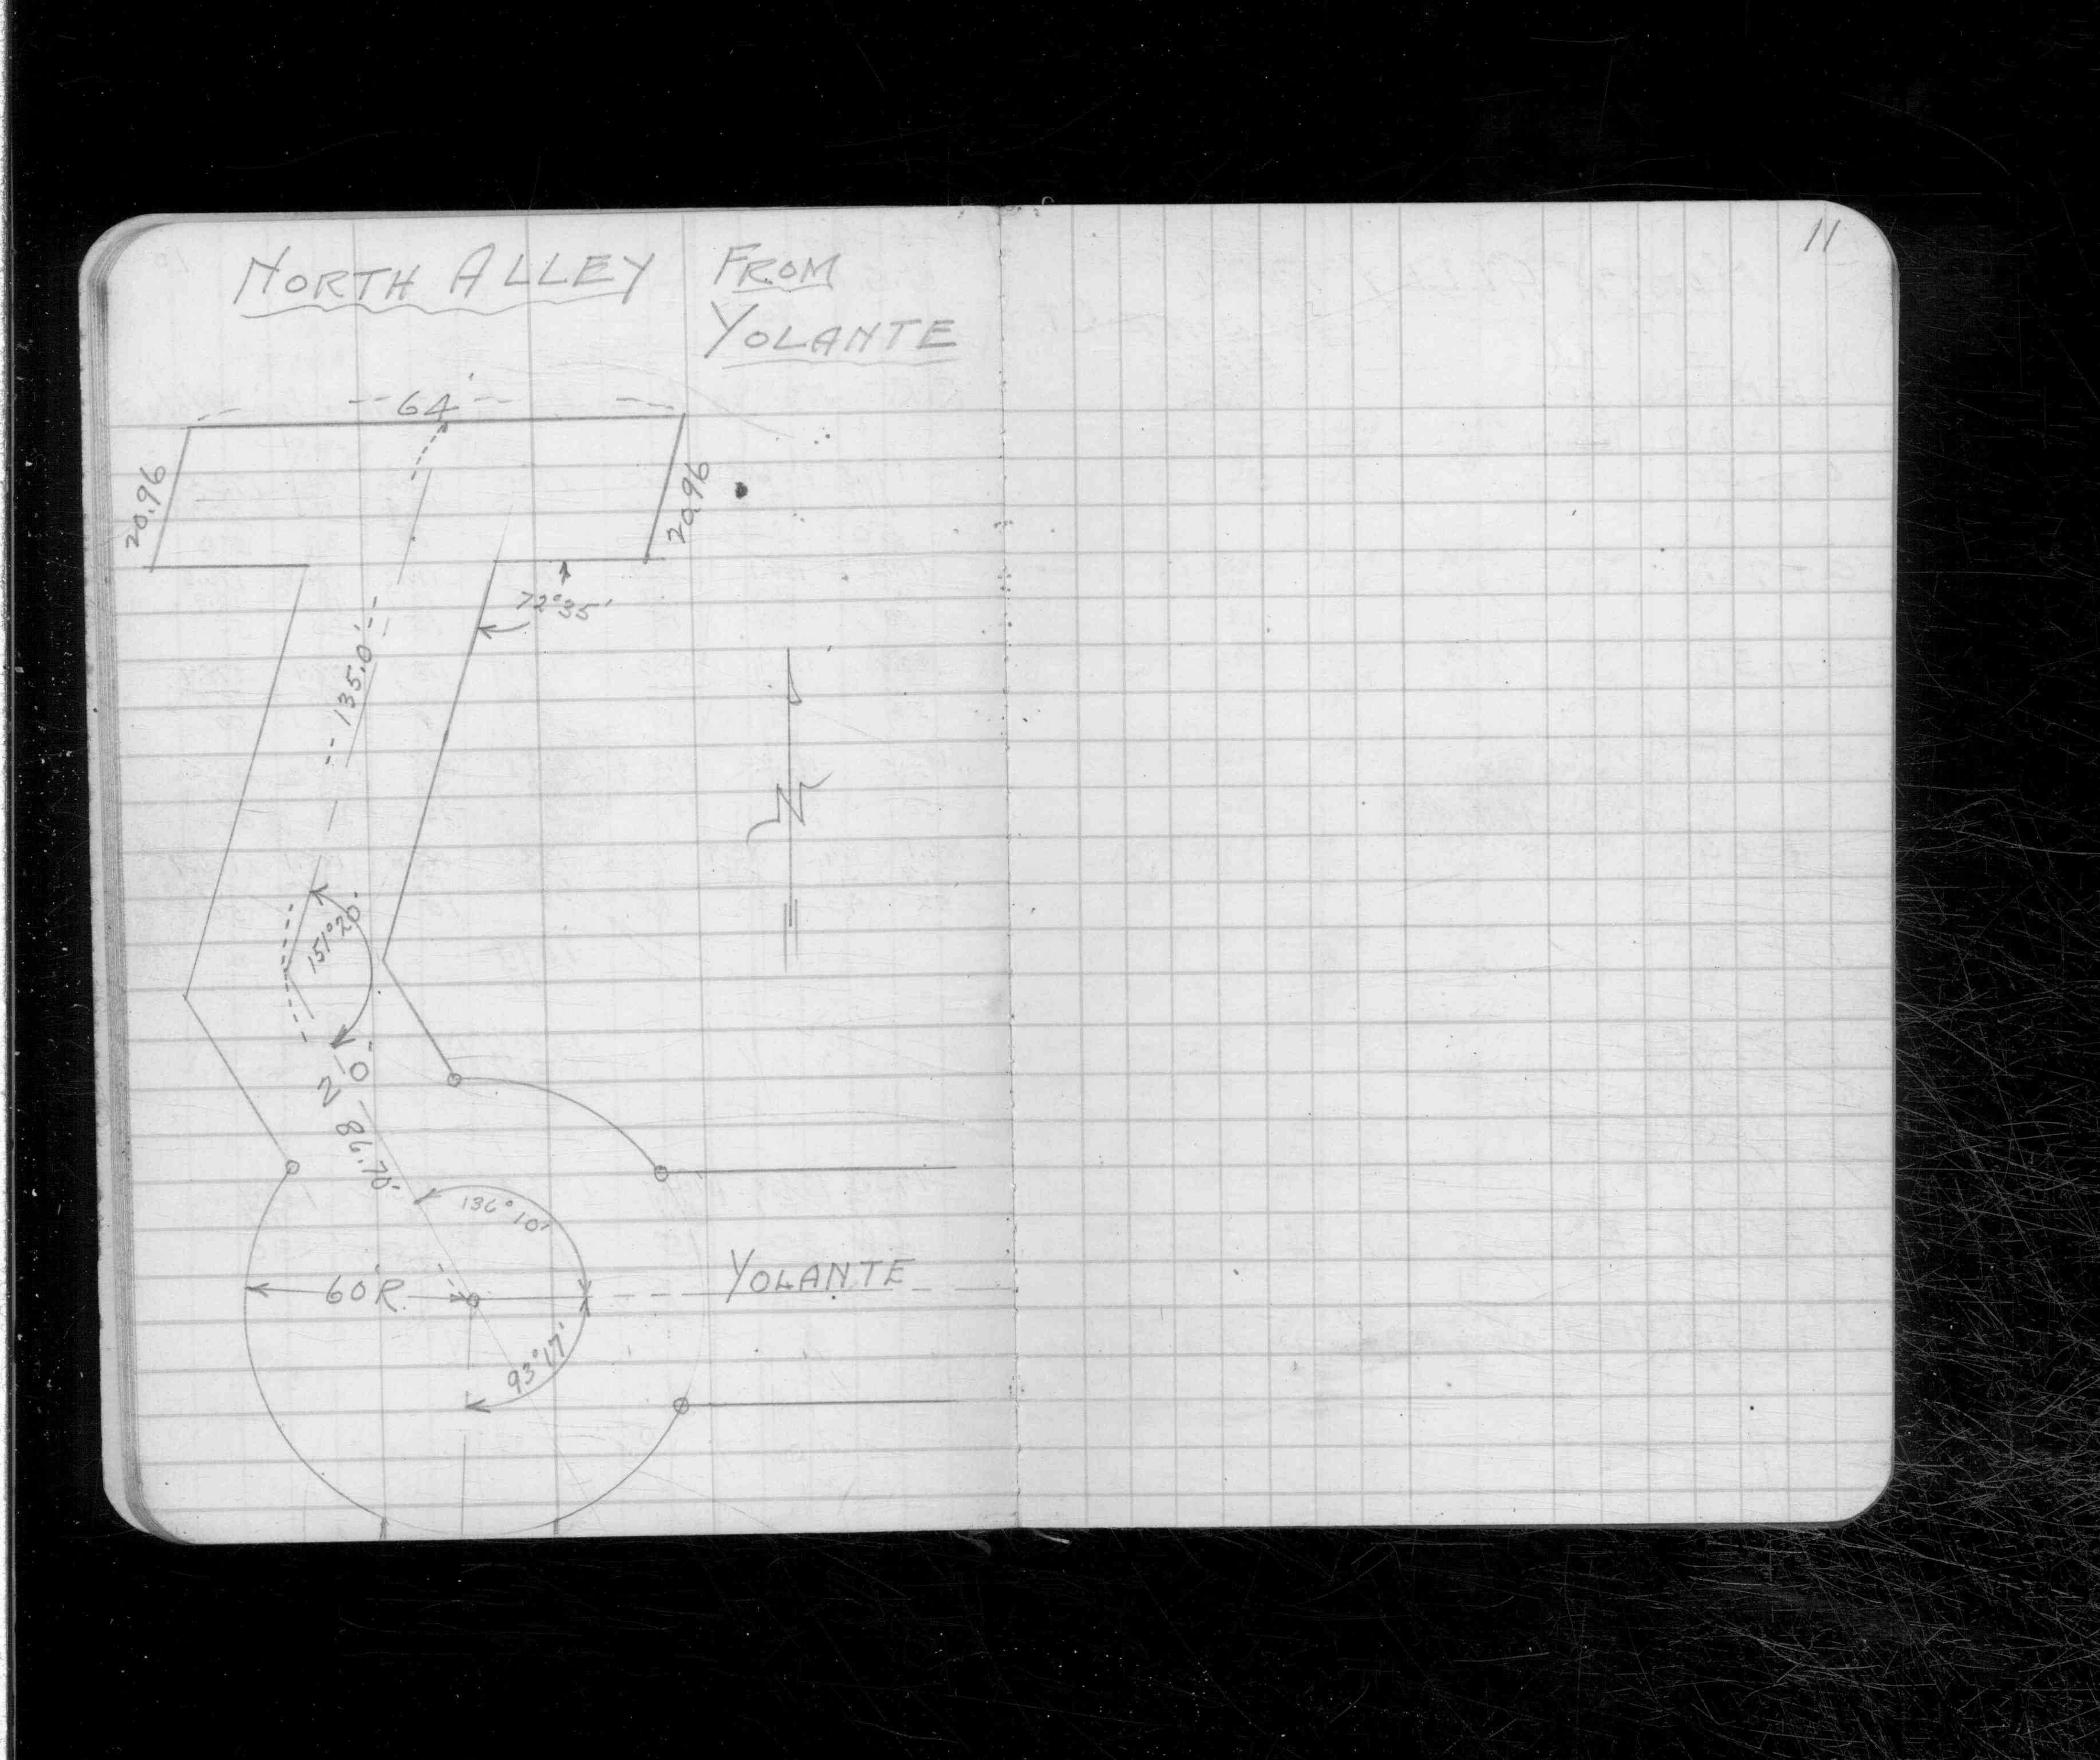 NORTH ALLEY FROM
YOLANTE
11
64'
20.96
20.96
72°35'
135.0'
N
151°20'
20'
86.70'
136°10'
60'R.
YOLANTE
93°17'